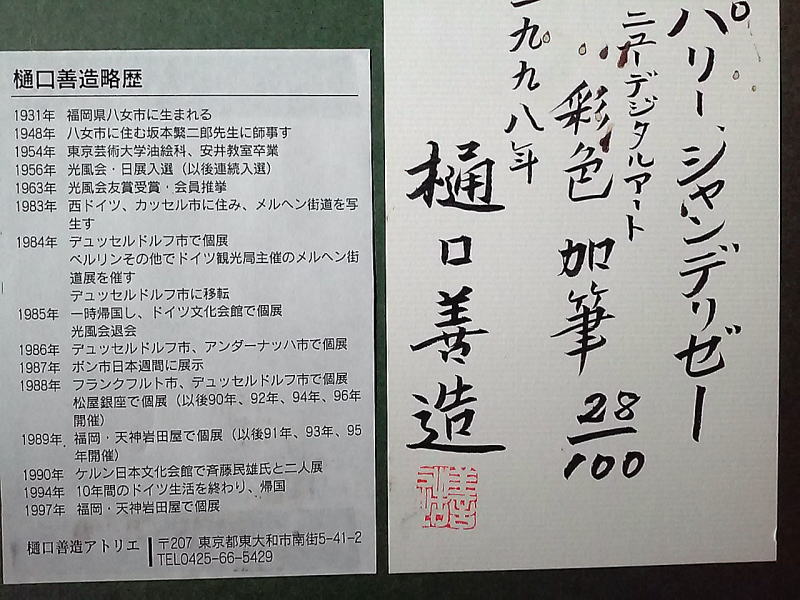 樋口善造略歴
1931年 福岡県八女市に生まれる
1948年 八女市に住む坂本繁二郎先生に師事す
1954年 東京芸術大学油絵科、安井教室卒業
1956年 光風会・日展入選（以後連続入選）
1963年 光風会友賞受賞・会員推挙
1983年 西ドイツ、カッセル市に住み、メルヘン街道を写
生す
1984年 デュッセルドルフ市で個展
ベルリンその他でドイツ観光局主催のメルヘン街
道展を催す
デュッセルドルフ市に移転
1985年 一時帰国し、ドイツ文化会館で個展
光風会退会
1986年 デュッセルドルフ市、アンダーナッハ市で個展
1987年 ボン市日本週間に展示
1988年 フランクフルト市、デュッセルドルフ市で個展
松屋銀座で個展（以後90年、92年、94年、96年
開催）
1989年 福岡・天神岩田屋で個展（以後91年、93年、95
年開催）
1990年 ケルン日本文化会館で斉藤民雄氏と二人展
1994年 10年間のドイツ生活を終わり、帰国
1997年 福岡・天神岩田屋で個展
樋口善造アトリエ
〒207 東京都東大和市南街5-41-2
TEL0425-66-5429
パリー、シャンデリゼー
ニューデジタルアート
彩色加筆 28/100
一九九八年
樋口善造